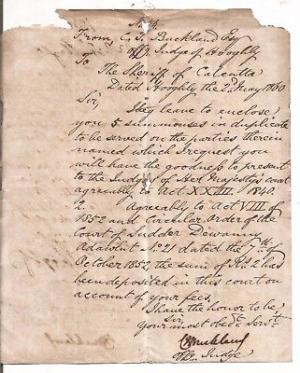 From C. T. Buckland Esq
Offg. Judge of Hooghly
To
The Sheriff of Calcutta
Dated Hooghly the 2 May 1860
Sir,
I beg leave to enclose
you 5 summonses in duplicate
to be served on the parties therein
named which I request you
will have the goodness to present
to the Judges of Her Majesty's court
agreeably to Act XXIII. 1840.
2. Agreeably to Act VIII of
1852 and Circular Order of the
Court of Sudder Dewanny
Adawlut No. 21 dated the 7th
October 1852, the sum of Rs. 2 has
been deposited in this court on
account of your fees,
I have the honor to be,
Sir,
your most obedt. Servt.
CTBuckland
Offg. Judge